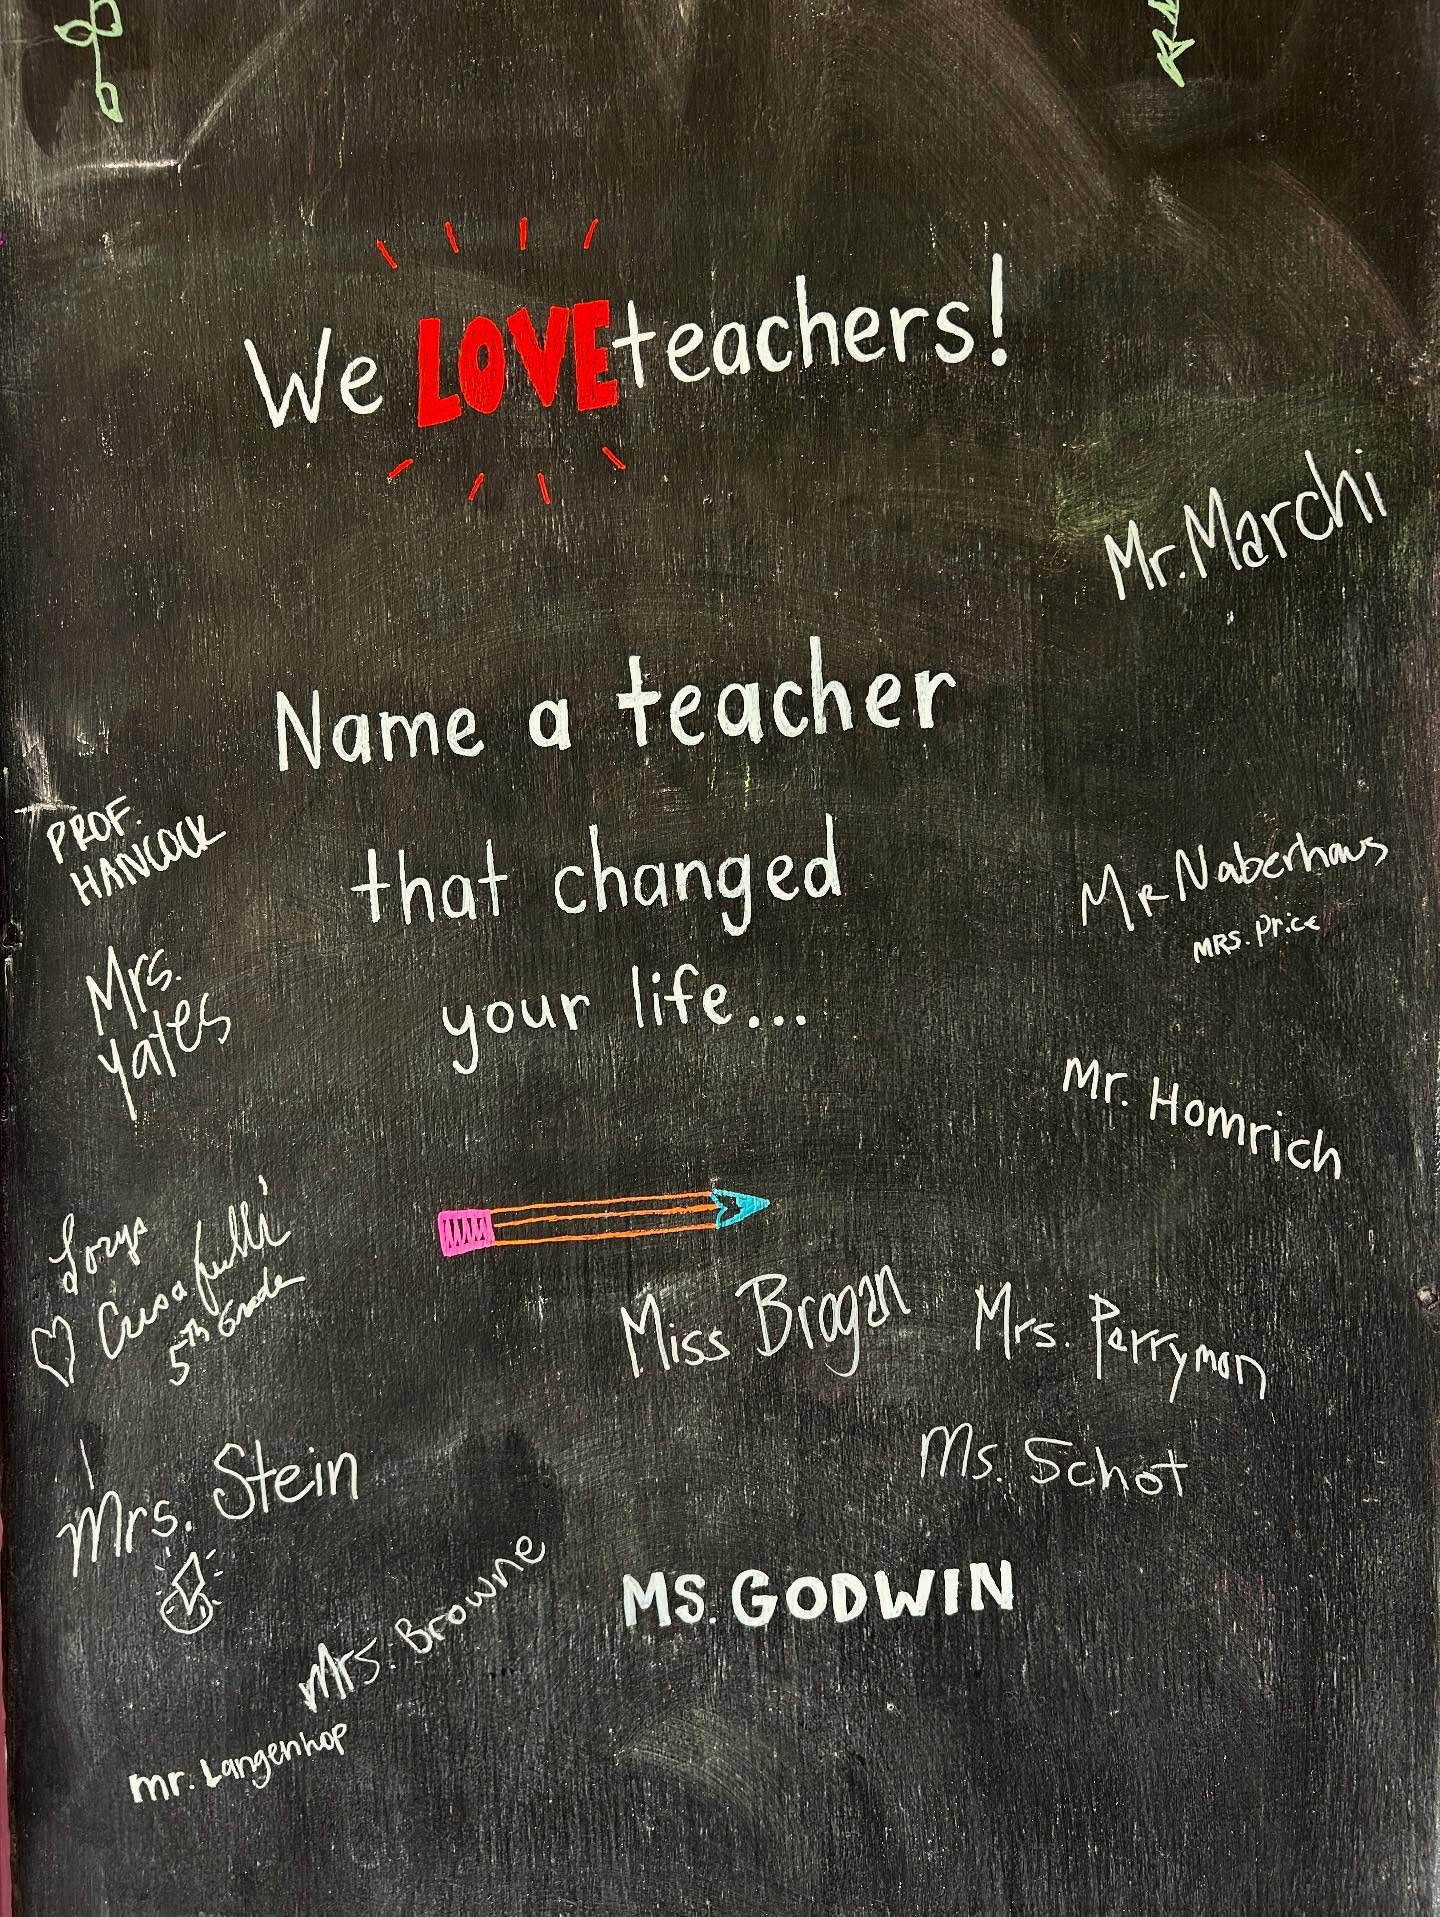 We LOVE teachers!
Mr. Marchi
Name a teacher
that changed
your life...
PROF.
HANCOCK
Mrs.
Yates
Mr Naberhaus
MRS. Price
Mr. Homrich
5th Grade
Miss Brogan
Mrs. Perryman
Ms. Schot
Mrs. Stein
MS. GODWIN
Mrs. Browne
mr. Langenhop